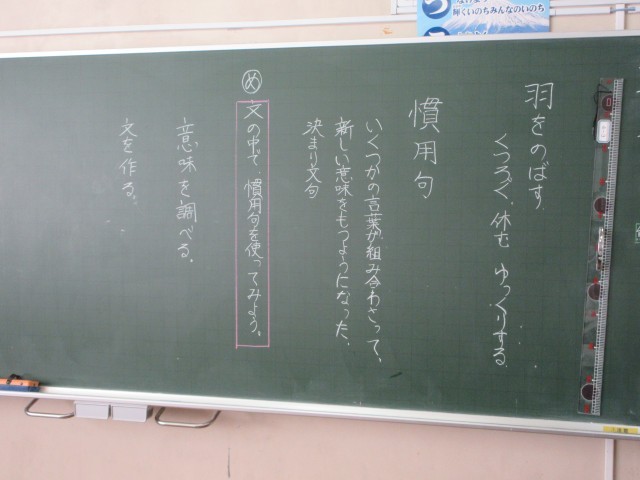 羽をのばす
くつろぐ、休む ゆっくりする
慣用句
いくつかの言葉が組み合わさって、
新しい意味をもつようになった、
決まり文句
め
文の中で、慣用句を使ってみよう。
意味を調べる。
文を作る。
輝くいのちみんなのいのち